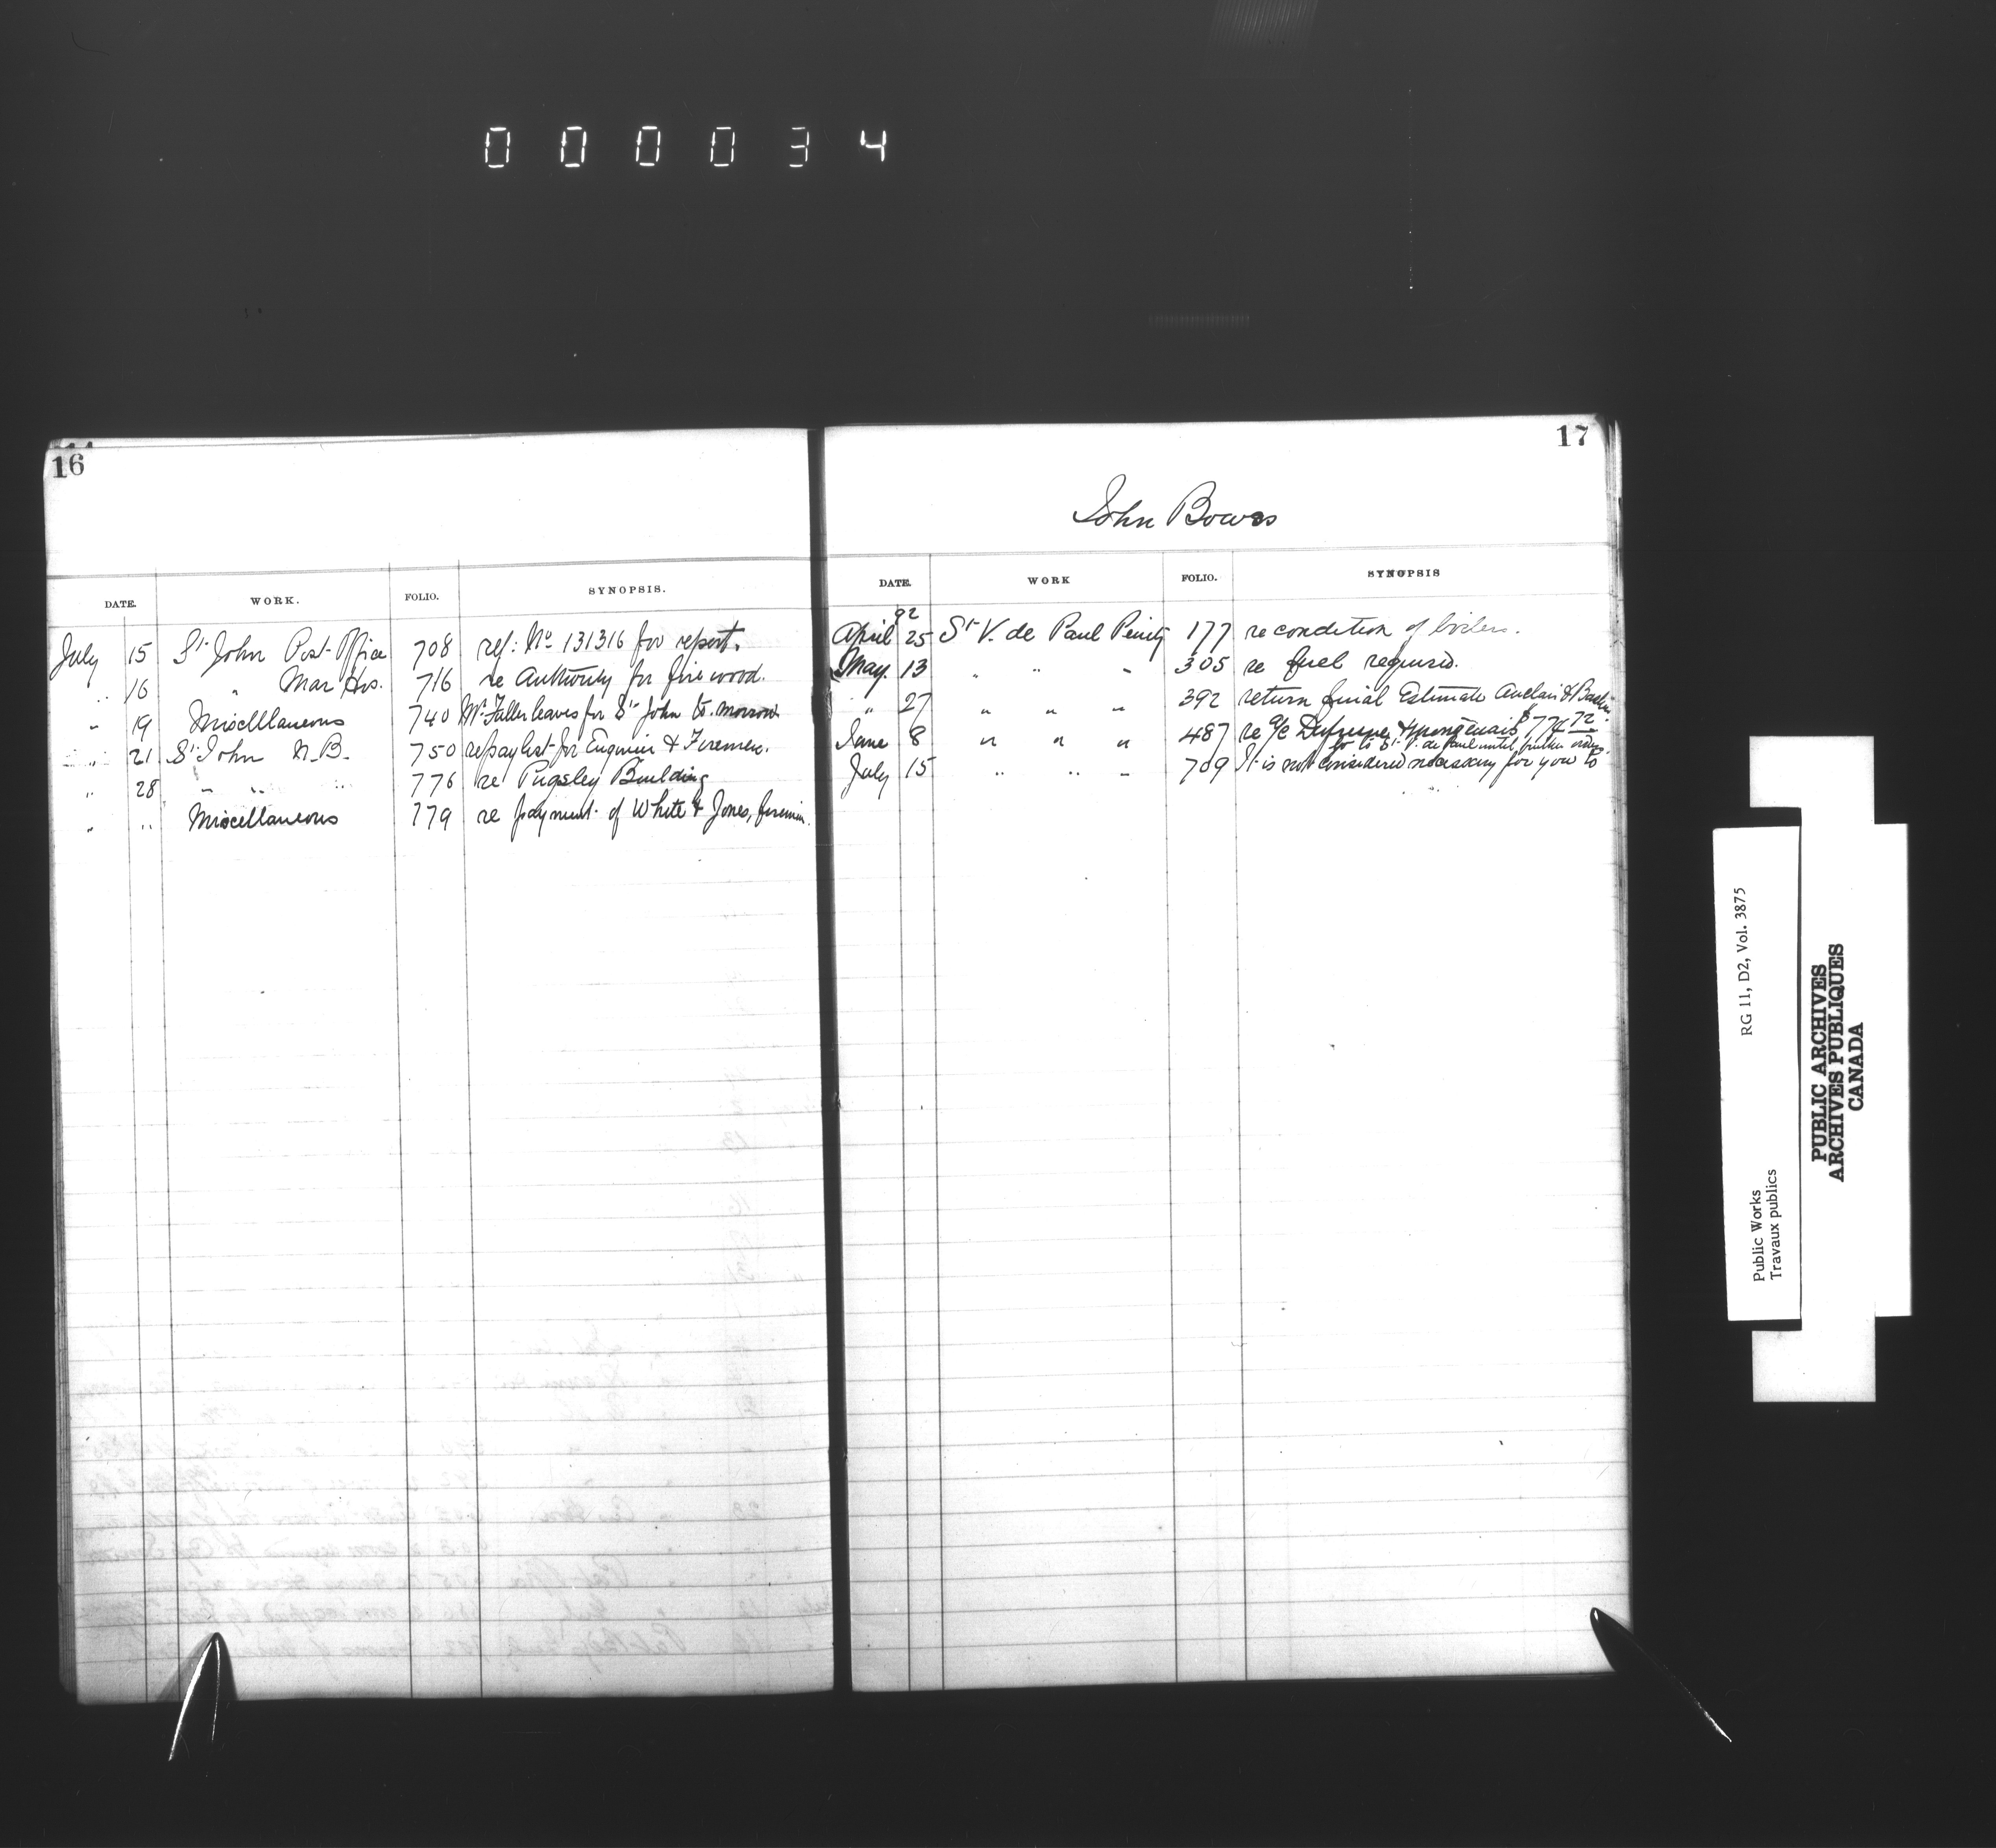 000034
16
DATE. WORK. FOLIO. SYNOPSIS.
July 15 St. John Post Office 708 ref: No 131316 for report.
.. 16 " Mar Hos. 716 re Authority for fire wood.
" 19 Miscellaneous 740 Mr Fuller leaves for St John to. morrow
" 21 St John N.B. 750 re paylist for Engineer & Firemen.
" 28 " " " 776 re Pugsley Building
" " Miscellaneous 779 re payment of White & Jones, firemen.
17
John Bowes
DATE. WORK FOLIO. SYNOPSIS
92
April 25 St V. de Paul Penity 177 re condition of boilers.
May. 13 " " " 305 re fuel required.
" 27 " " " 392 return final Estimate Auclair &
June 8 " " " 487 re a/c Dufresne & Mongenais $774 72
go to St. V. de Paul until further orders.
July 15 " " " 709 It is not considered necessary for you to
Public Works RG 11, D2, Vol. 3875
Travaux publics
PUBLIC ARCHIVES
ARCHIVES PUBLIQUES
CANADA